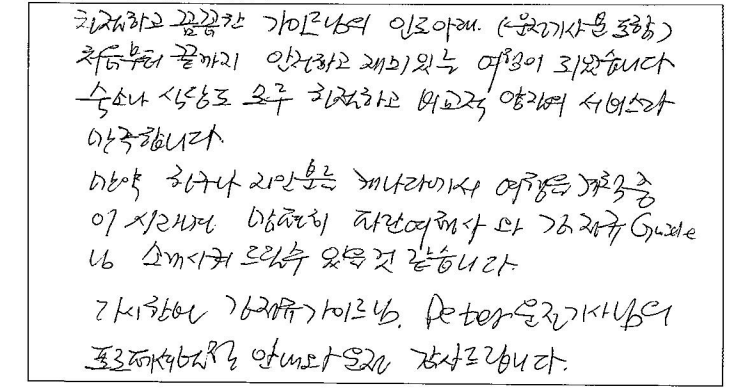 친절하고 꼼꼼한 가이드님의 인도아래. (운전기사분 포함)
처음부터 끝까지 안전하고 재미있는 여행이 되었습니다
숙소나 식당도 모두 친절하고 비교적 양질의 서비스라
만족합니다.
만약 친구나 지인분들 캐나다에서 여행을 계획중
이시라면 당연히 파란여행사 와 강재규 Guide
님 소개시켜 드릴수 있을것 같습니다.
다시한번 강재규가이드님. Peter운전기사님의
프로페셔널한 안내와 운전 감사드립니다.